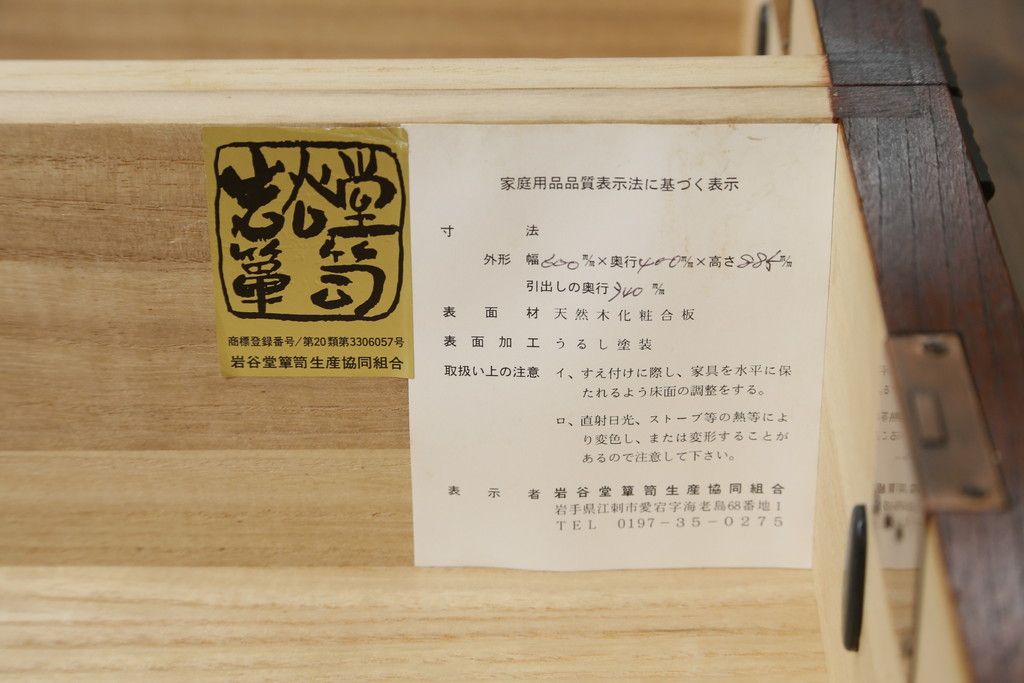 岩谷堂
簞笥
商標登録番号/第20類第3306057号
岩谷堂簞笥生産協同組合
家庭用品品質表示法に基づく表示
寸法
外形 幅600㎜×奥行400㎜×高さ885㎜
引出しの奥行340㎜
表面材 天然木化粧合板
表面加工 うるし塗装
取扱い上の注意 イ、すえ付けに際し、家具を水平に保
たれるよう床面の調整をする。
ロ、直射日光、ストーブ等の熱等によ
り変色し、または変形することが
あるので注意して下さい。
表示者 岩谷堂簞笥生産協同組合
岩手県江刺市愛宕字海老島68番地1
TEL 0197-35-0275